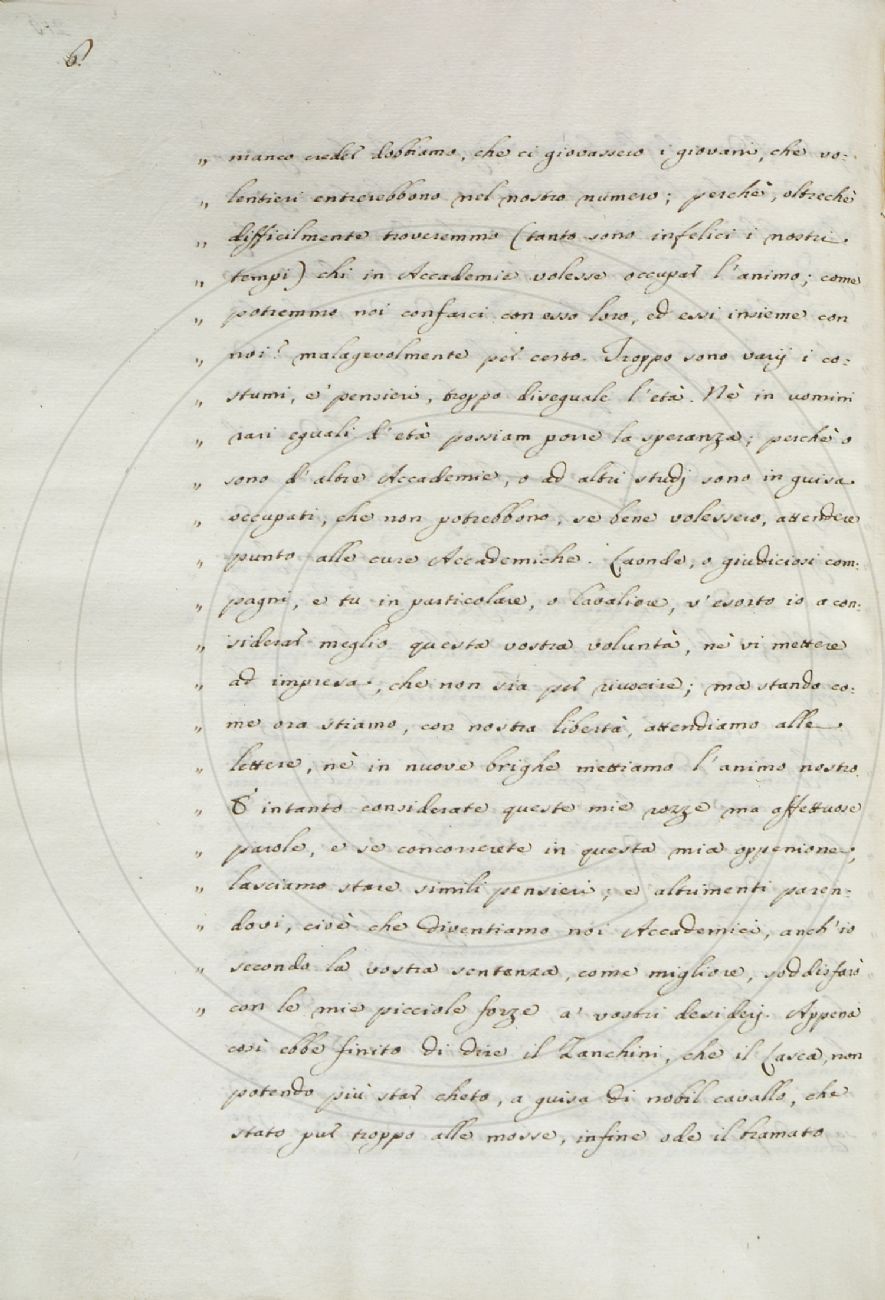 6.
„ manco creder dobbiamo, che ci giovassero i giovani, che vo-
„ lentieri entrerebbono nel nostro numero; perchè, oltrechè
„ difficilmente troveremmo (tanto sono infelici i nostri
„ tempi) chi in Accademie volesse occupar l'animo; come
„ potremmo noi confarci con esso loro, ed essi insieme con
„ noi? malagevolmente per certo. Troppo sono varij i co-
„ stumi, e' pensieri, troppo diseguale l'età. Nè in uomini
„ vari eguali d'età possiam porre la speranza; perchè o
„ sono d'altre Accademie, o ad altri studj sono in guisa
„ occupati, che non potrebbono, se bene volessero, attendere
„ punto alle cure Accademiche. Laonde, o giudiciosi com-
„ pagni, e tu in particolare, o Cavaliere, v'esorto io a con-
„ siderar meglio questa vostra voluntà, nè vi mettere
„ ad impresa, che non sia per riuscire; ma stando co-
„ me ora stiamo, con nostra libertà, attendiamo alle
„ lettere, nè in nuove brighe mettiamo l'animo nostro.
„ E intanto considerate queste mie rozze ma affettuose
„ parole, e se concorrerete in questa mia oppenione,
„ lasciamo stare simili pensieri; e altrimenti paren-
„ dovi, cioè che diventiamo noi Accademici, anch'io
„ secondo la vostra sentenza, come migliore, soddisfarò
„ con le mie picciole forze a' vostri desiderj. Appena
così ebbe finito di dire il Zanchini, che il Lasca, non
potendo più star cheto, a guisa di nobil cavallo, che
stato pur troppo alle mosse, infine ode il bramato